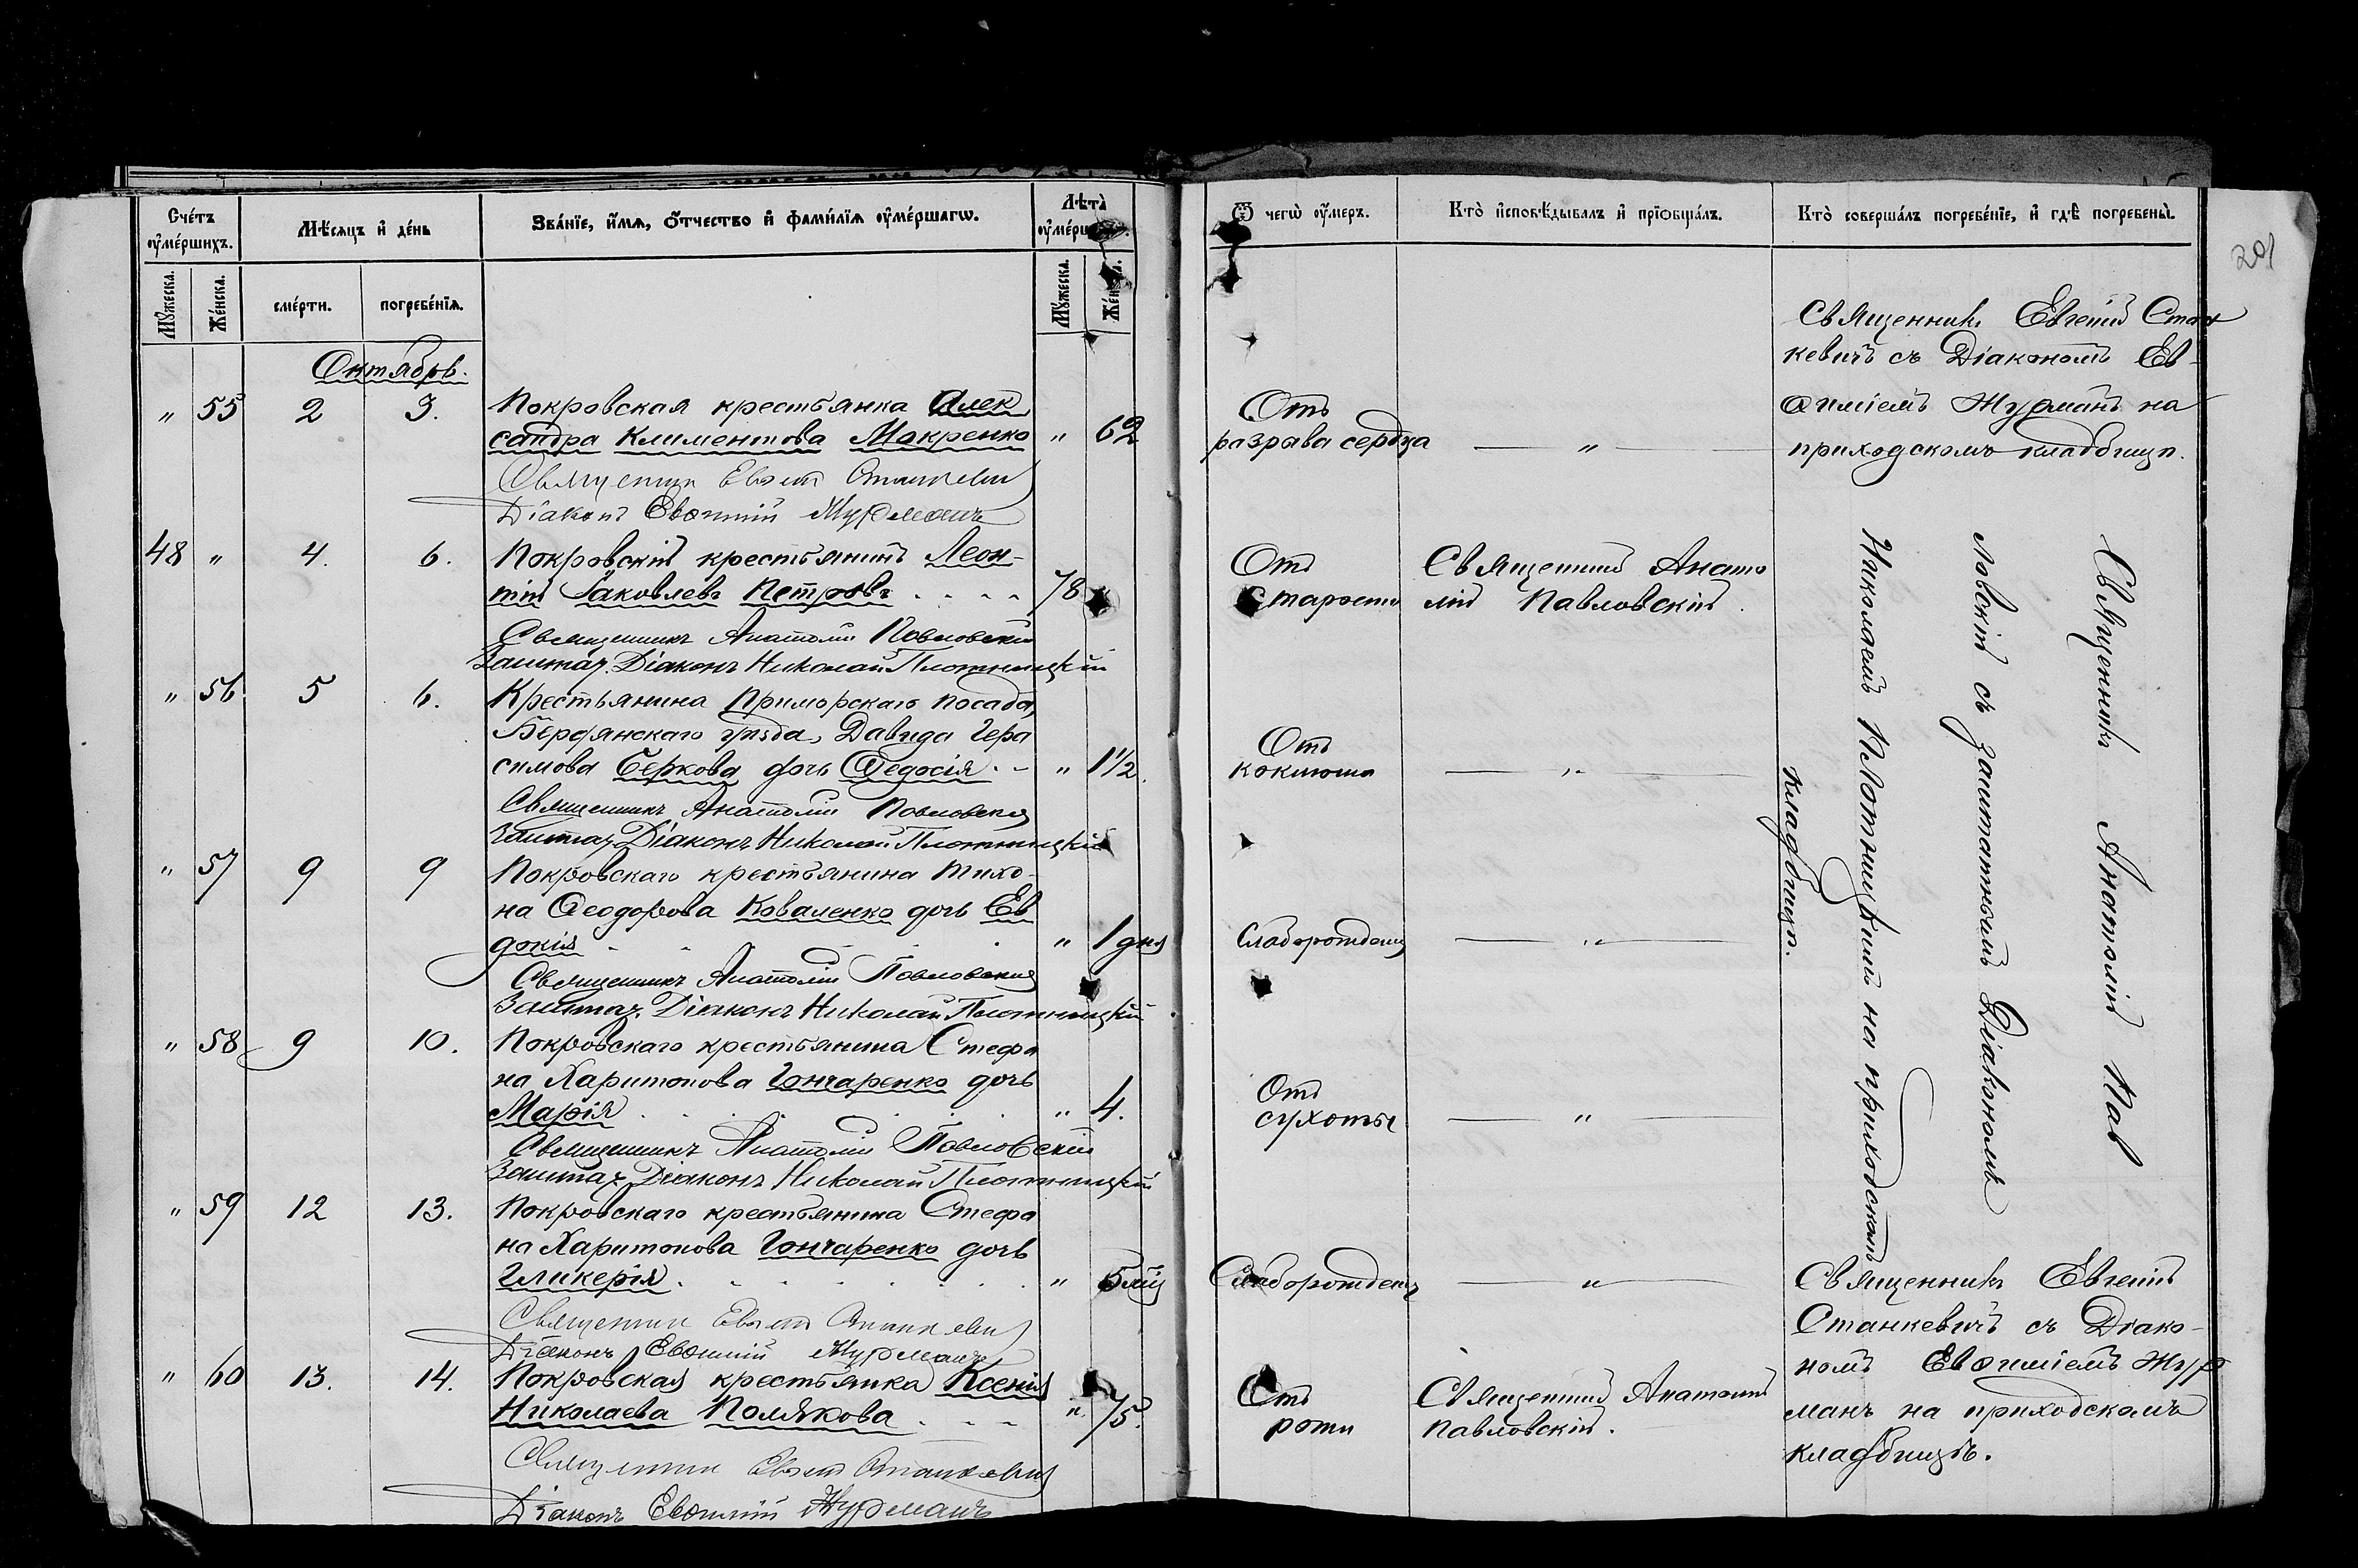 Счетъ умершихъ.
Мѣсяцъ и день
Званіе, имя, отчество и фамилія умершагω.
Лѣта умерш
Мужеска.
Женска.
смерти.
погребенія.
Мужеска.
Октябрь.
" 55 2 3. Покровская крестьянка Алек
сандра Климентова Мокренко " 62
Священник Евгеній Станкевич
Діаконъ Евѳимій Журманъ
48 " 4. 6. Покровскій крестьянинъ Леон-
тій Іаковлевъ Петровъ 78
Священникъ Анатолій Павловскій
Заштат. Діаконъ Николай Плотницкій
" 56 5 6. Крестьянина Приморскаго посада,
Бердянскаго уѣзда, Давида Гера
симова Беркова дочь Ѳедосія. " 1 1/2.
Священникъ Анатолій Павловскій
Заштат. Діаконъ Николай Плотницкій
" 57 9 9 Покровскаго крестьянина Тихо-
на Ѳеодорова Коваленко дочь Ев
докія " 1 дня
Священникъ Анатолій Павловскій
Заштат. Діаконъ Николай Плотницкій
" 58 9 10. Покровскаго крестьянина Стефа
на Харитонова Гончаренко дочь
Марія " 4.
Священникъ Анатолій Павловскій
Заштат. Діаконъ Николай Плотницкій
" 59 12 13. Покровскаго крестьянина Стефа
на Харитонова Гончаренко дочь
Гликерія. "
Священник Евгеній Станкевич
Діаконъ Евѳимій Журманъ
" 60 13. 14. Покровская крестьянка Ксенія
Николаева Полякова " 75.
Священник Евгеній Станкевич
Діаконъ Евѳимій Журманъ
Ѿ чегω умеръ.
Кто исповѣдывалъ и пріобщалъ.
Кто совершалъ погребеніе, и гдѣ погребены.
201
Отъ
разрыва сердца "
Священникъ Евгеній Стан
кевичъ съ Діакономъ Ев-
ѳиміемъ Журманъ на
приходскомъ кладбищѣ.
Отъ
старости
Священникъ Анато
лій Павловскій.
Отъ
коклюша "
Слаборожденія "
Отъ
сухоты "
Слаборожденія "
Священникъ Анатолій Пав
ловскій съ заштатнымъ Діакономъ
Николаемъ Плотницкимъ на приходскомъ
кладбищѣ.
Священникъ Евгеній
Станкевичъ съ Діако-
номъ Евѳиміемъ Жур
манъ на приходскомъ
кладбищѣ.
Священникъ Анатолій
Павловскій.